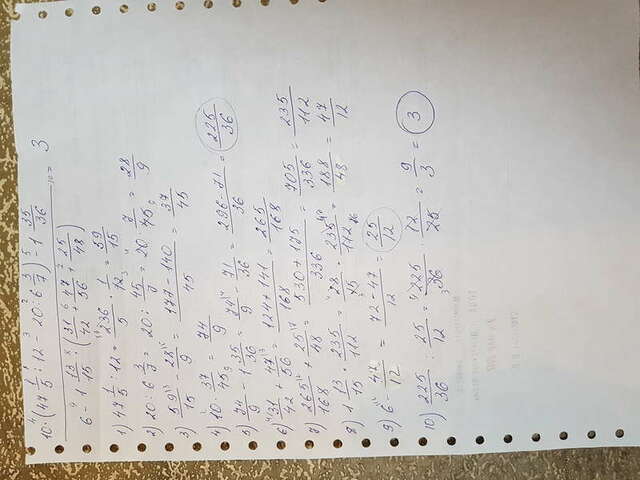 10·(47 1/5 : 12 − 20 : 6 3/7) − 1 35/36
6 − 1 13/15 · (31/42 + 47/56 + 25/48) = 3
1) 47 1/5 : 12 = 236/5 · 1/12 = 59/15
2) 20 : 6 3/7 = 20 : 45/7 = 20 · 7/45 = 28/9
3) 59/15 − 28/9 = 177 − 140/45 = 37/45
4) 10 · 37/45 = 74/9
5) 74/9 − 1 35/36 = 74/9 − 71/36 = 296 − 71/36 = 225/36
6) 31/42 + 47/56 = 124 + 141/168 = 265/168
7) 265/168 + 25/48 = 530 + 175/336 = 705/336 = 235/112
8) 1 13/15 · 235/112 = 28/15 · 235/112 = 188/48 = 47/12
9) 6 − 47/12 = 72 − 47/12 = 25/12
10) 225/36 : 25/12 = 225/36 · 12/25 = 9/3 = 3